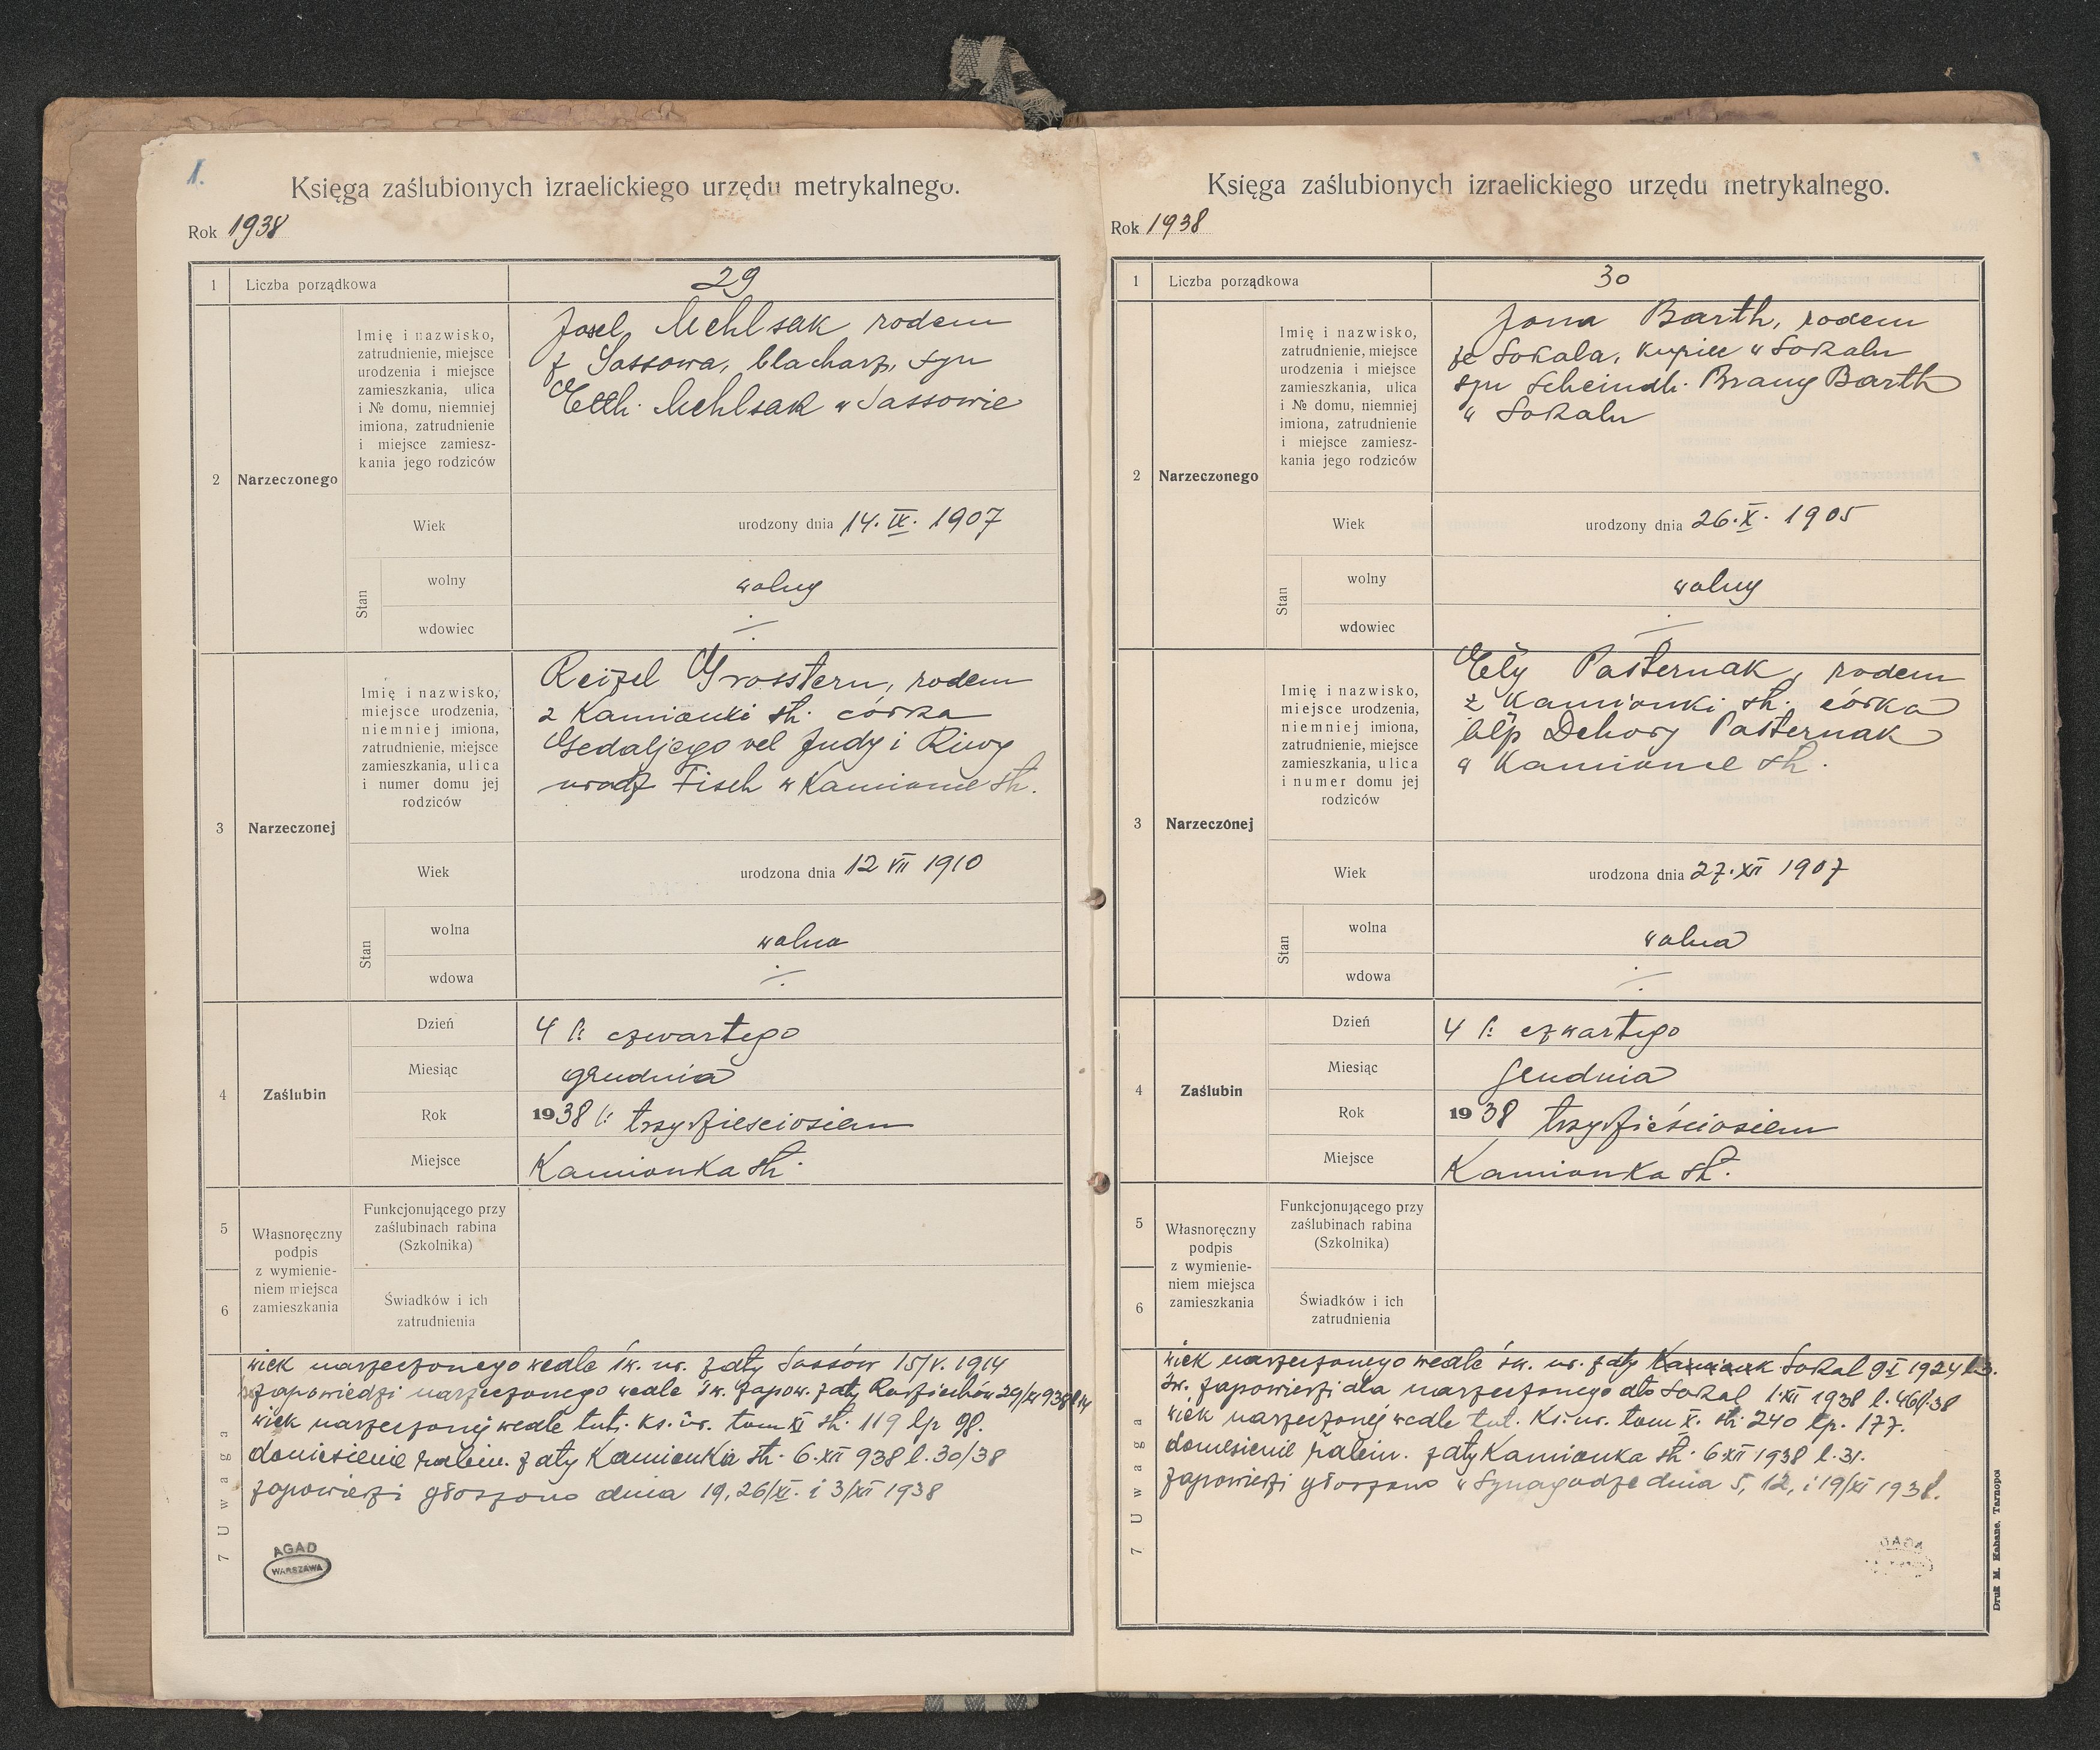 1.
Księga zaślubionych izraelickiego urzędu metrykalnego.
Rok 1938
1 Liczba porządkowa 29
2 Narzeczonego
Imię i nazwisko,
zatrudnienie, miejsce
urodzenia i miejsce
zamieszkania, ulica
i № domu, niemniej
imiona, zatrudnienie
i miejsce zamiesz-
kania jego rodziców
Josel Mehlsak rodem
z Sassowa, blacharz, syn
Etth. Mehlsak w Sassowie
Wiek urodzony dnia 14. IX. 1907
Stan
wolny wolny
wdowiec
3 Narzeczonej
Imię i nazwisko,
miejsce urodzenia,
niemniej imiona,
zatrudnienie, miejsce
zamieszkania, ulica
i numer domu jej
rodziców
Reizel Grosstern, rodem
z Kamionki st. córka
Gedaljego vel Judy i Riwy
urodz Fisch w Kamionce st.
Wiek urodzona dnia 12 VII 1910
Stan
wolna wolna
wdowa
4 Zaślubin
Dzień 4 l: czwartego
Miesiąc grudnia
Rok 1938 l: trzydzieściosiem
Miejsce Kamionka st.
5
6
Własnoręczny
podpis
z wymienie-
niem miejsca
zamieszkania
Funkcjonującego przy
zaślubinach rabina
(Szkolnika)
Świadków i ich
zatrudnienia
7 Uwaga
wiek narzeczonego wedle św. ur. z daty Sassów 15/V. 1914
zapowiedzi narzeczonego wedle św. zapow. z daty Radziechów 29/XI 938
wiek narzeczonej wedle tut. ks. ur. tom XI st. 119 lp 98.
doniesienie rabin. z daty Kamionka st. 6. XII 938 l. 30/38
zapowiedzi głoszono dnia 19, 26/XI. i 3/XII 1938
AGAD
WARSZAWA
Księga zaślubionych izraelickiego urzędu metrykalnego.
Rok 1938
1 Liczba porządkowa 30
2 Narzeczonego
Imię i nazwisko,
zatrudnienie, miejsce
urodzenia i miejsce
zamieszkania, ulica
i № domu, niemniej
imiona, zatrudnienie
i miejsce zamiesz-
kania jego rodziców
Jona Barth, rodem
ze Sokala, kupiec w Sokalu
syn Scheindli Brany Barth
w Sokalu
Wiek urodzony dnia 26. X. 1905
Stan
wolny wolny
wdowiec
3 Narzeczonej
Imię i nazwisko,
miejsce urodzenia,
niemniej imiona,
zatrudnienie, miejsce
zamieszkania, ulica
i numer domu jej
rodziców
Pasternak, rodem
z Kamionki st. córka
Debory Pasternak
w Kamionce st.
Wiek urodzona dnia 27. XII 1907
Stan
wolna wolna
wdowa
4 Zaślubin
Dzień 4 l: czwartego
Miesiąc grudnia
Rok 1938 trzydzieściosiem
Miejsce Kamionka st.
5
6
Własnoręczny
podpis
z wymienie-
niem miejsca
zamieszkania
Funkcjonującego przy
zaślubinach rabina
(Szkolnika)
Świadków i ich
zatrudnienia
7 Uwaga
wiek narzeczonego wedle św. ur. z daty Sokal 9 I 1924 l. 3.
św. zapowiedzi dla narzeczonego dto Sokal 1. XII 1938
wiek narzeczonej wedle tut. ks. ur. tom X. st. 240 lp. 177.
doniesienie rabin. z daty Kamionka st. 6 XII 1938 l. 31.
zapowiedzi głoszono w Synagodze dnia 5, 12, i 19/XI 1938.
Druk M. Kahane, Tarnopol